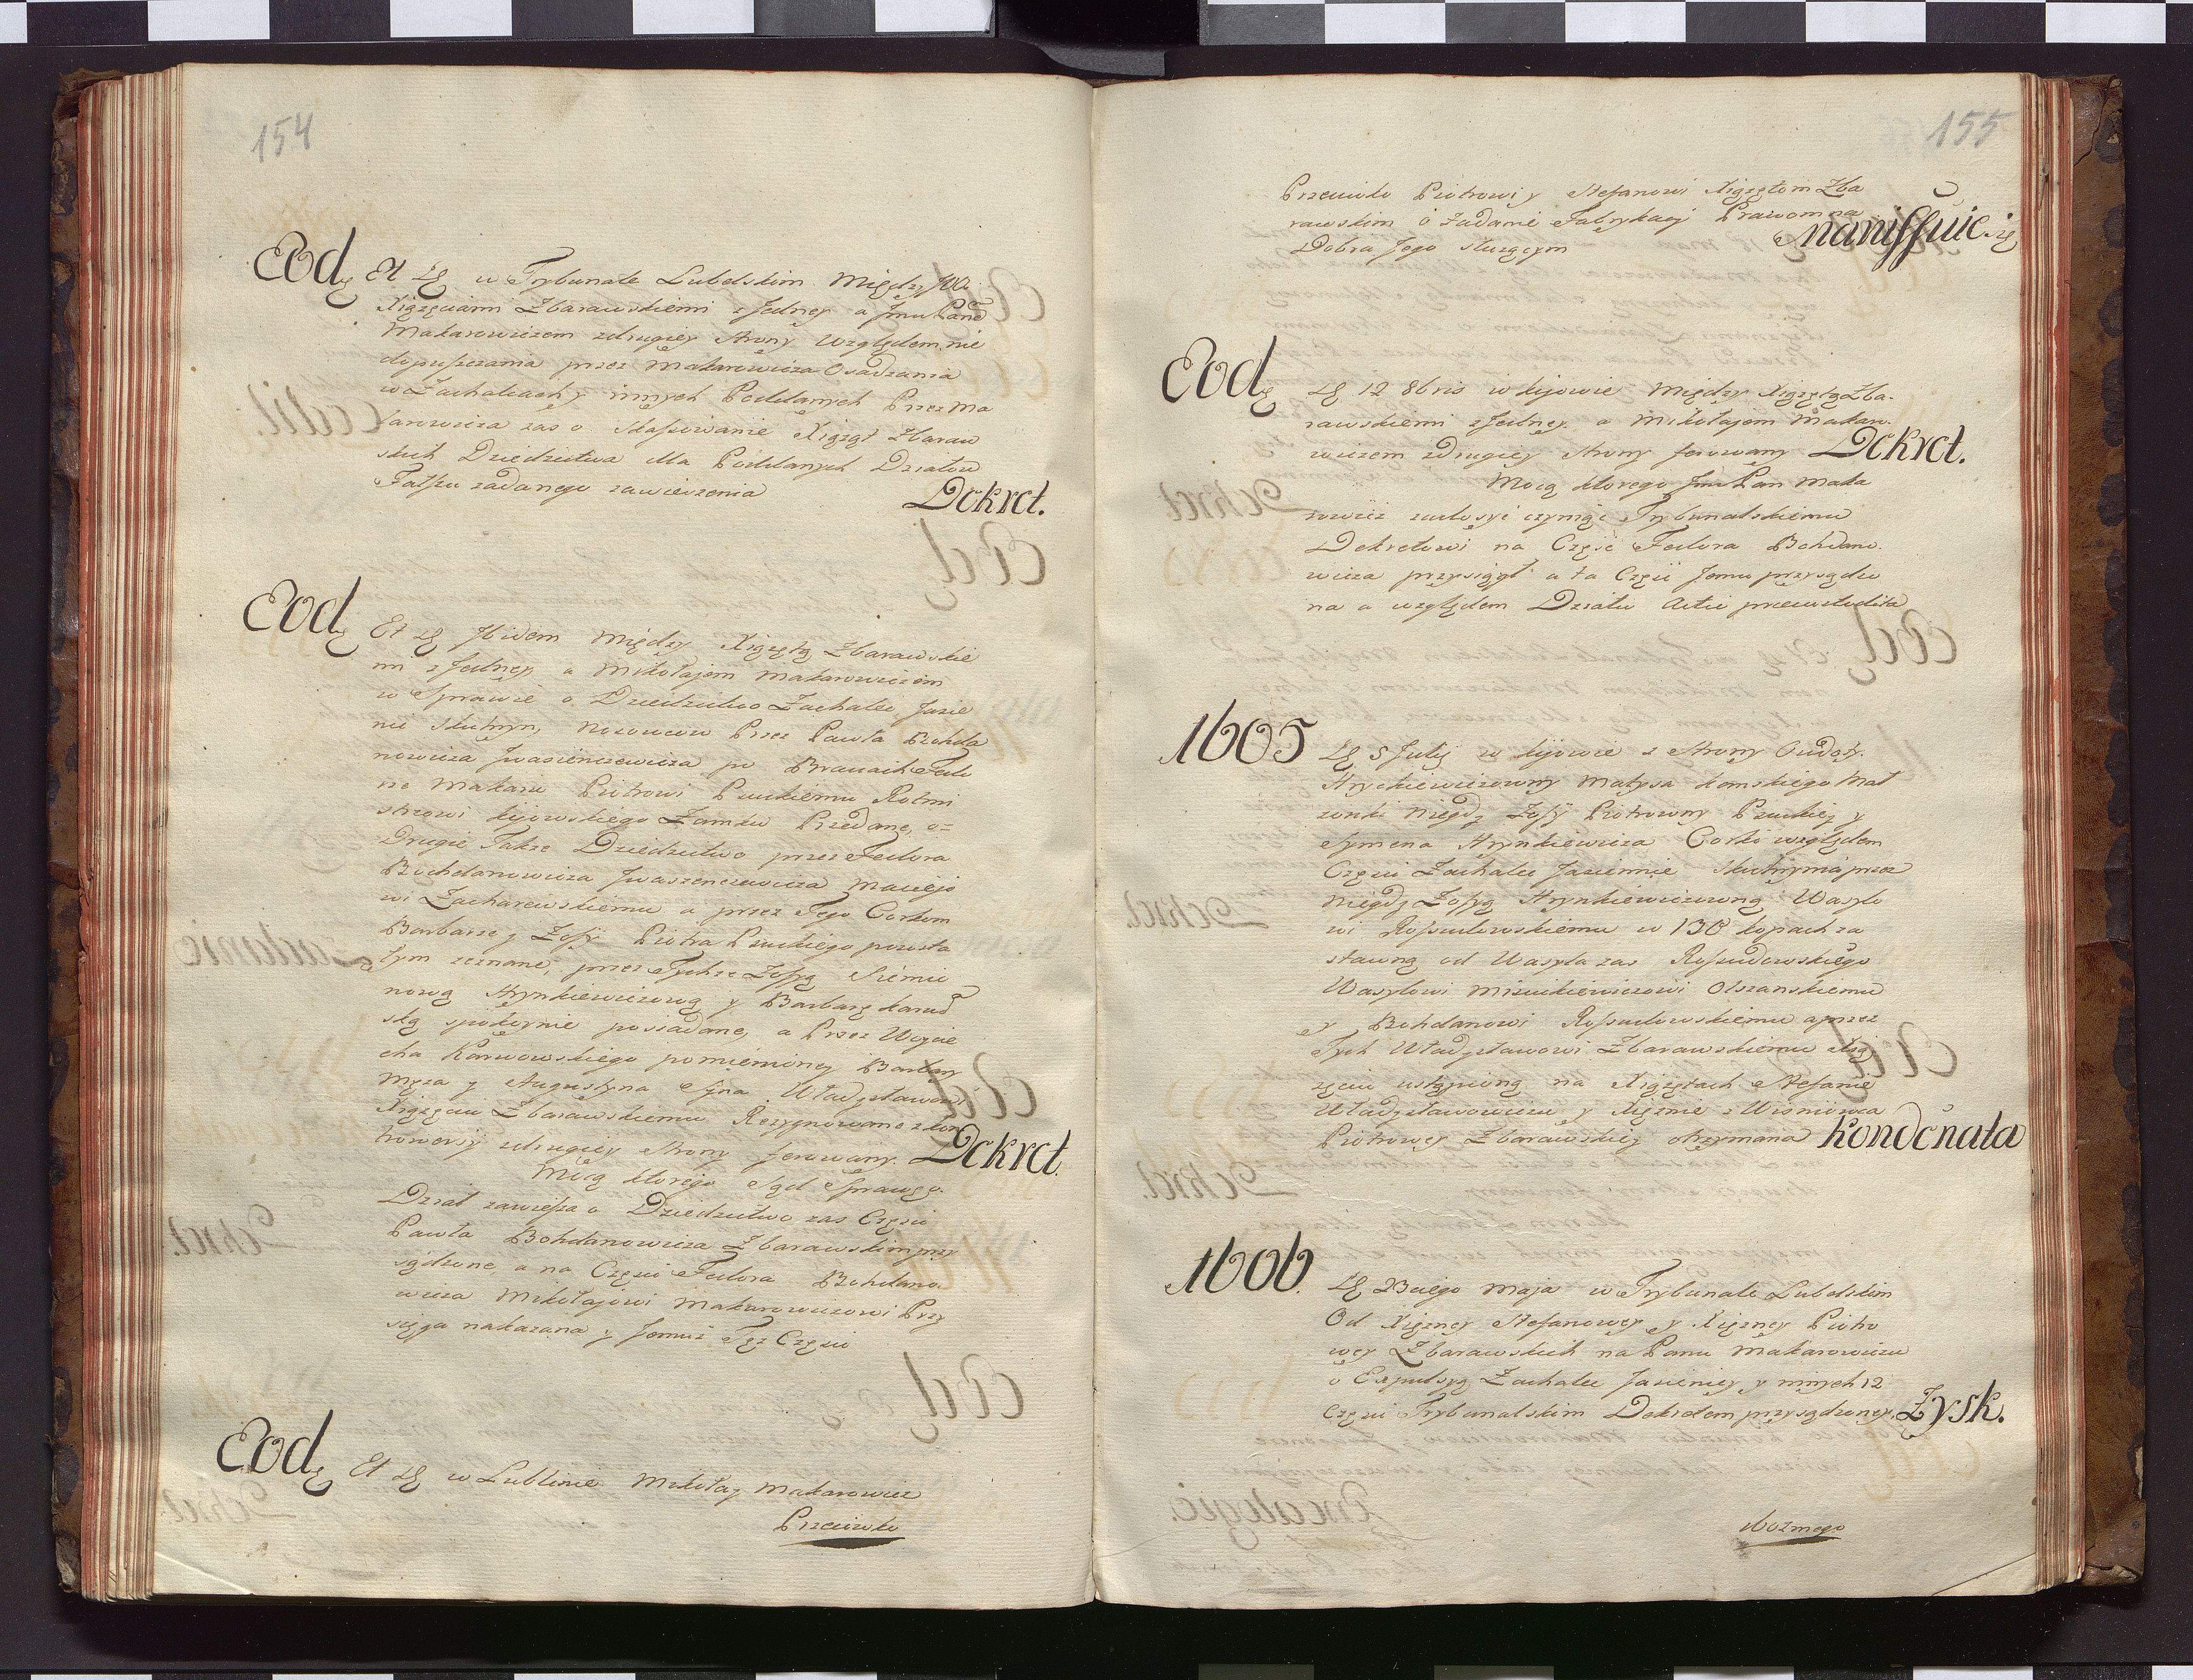 154
Eodę Et Dę w Trybunale Lubelskim Między
Xiążęciami Zbarawskiemi z Jedney a Jmć Pane
Makarowiczem zdrugiey strony względem nie
dopuszczania przez Makarowicza Osadzania
w Zachalcach y innych Poddanych Przez Ma
karowicza zas o Skassowanie Xiążąt Zbaraw
skich Dziedzictwa dla Poddanych Działow
Fałszu zadanego zawieszenia Dekret.
Eodę Et Dę Ibidem Między Xiążęty Zbarawskie
mi z Jedney a Mikołajem Makarowiczem
w Sprawie o Dziedzictwo Zachalec Jasie
nie Skutnyn, Nosowcow Przez Pawła Bohda
nowicza Jwasienczewicza po Braciach Fedo
rze Makaru Piotrowi Pauckiemu Rotmi
strzowi kijowskiego Zamku Przedane, o=
Drugie Także Dziedzictwo przez Fedora
Bochdanowicza Jwaszenczewicza Maciejo
wi Zacharewskiemu a przez Tego Corkom
Barbarze y Zofÿ Piotra Pauckiego pozosta
łym zeznane, przez Tychze Zofyą Siemio
nową Hrynkiewiczową y Barbarę karwo
ską spokoynie posiadane, a Przez Woycie
cha Karwowskiego pomienioney Barbary
Męża y Augustyna Syna Władysławowi
Xiążęciu Zbarawskiemu Rezygnowane z kon
trowersÿ zdrugiey strony ferowany. Dekret.
Mocą ktorego Sąd Sprawę o
Dział zawiesza o Dziedzictwo zas Części
Pawła Bohdanowicza Zbarawskim przy
sądzone, a na Części Fedora Bohdano
wicza Mikołajowi Makarowiczowi Przy
sięga nakazana y Jemuż Też Części
Eodę Et Dę w Lublinie Mikołay Makarowicz
Przeciwko
155
Przeciwko Piotrowi y Stefanowi Xiążętom Zba
rawskim o Zadanie Fabrykacÿ Prawom na
Dobra Jego służącym Manissuie się
Eodę Dę 12 8bris w kijowie Między Xiążęty Zba-
rawskiemi z Jedney a Mikołajem Makaro-
wiczem zdrugiey strony ferowany Dekret.
Mocą ktorego Jmć Pan Maka
rowicz zadosyć czyniąc Trybunalskiemu
Dekretowi na Część Fedora Bohdano-
wicza przysiągł a ta Część Jemu przysądzo
na a względem Działu
1605 Dę 5 Julÿ w kijowie z strony
Hryckiewiczowny Matysa komskiego Mał
zonki Niegdy Zofÿ Piotrowny Pauckiey y
Symena Hrynkiewicza Corki względem
Części Zachalec Jasiennie Skutnynia przez
Niegdy Zofyą Hrynkiewiczową Wasylo
wi Rossudowskiemu w 130 kopach za
stawną od Wasyla zas Rossudowskiego
Wasylowi Misuckiewiczowi Olszanskiemu
y Bohdanowi Rossudowskiemu a przez
Tych Władysławowi Zbarawskiemu Xią
zęciu ustąpioną na Xiążętach Stefanie
Władysławowiczu y Xięznie z Wisniowca
Piotrowey Zbarawskiey otrzymana kondenata
1606. Dę 23ciego Maja w Trybunale Lubelskim
Od Xięzney Stefanowey y Xięzney Piotro
wey Zbarawskich na Panu Makarowiczu
o Expulsyą Zachalec Jasieniey y innych 12
Części Trybunalskim Dekretem przysądzoney Zysk.
Woznego